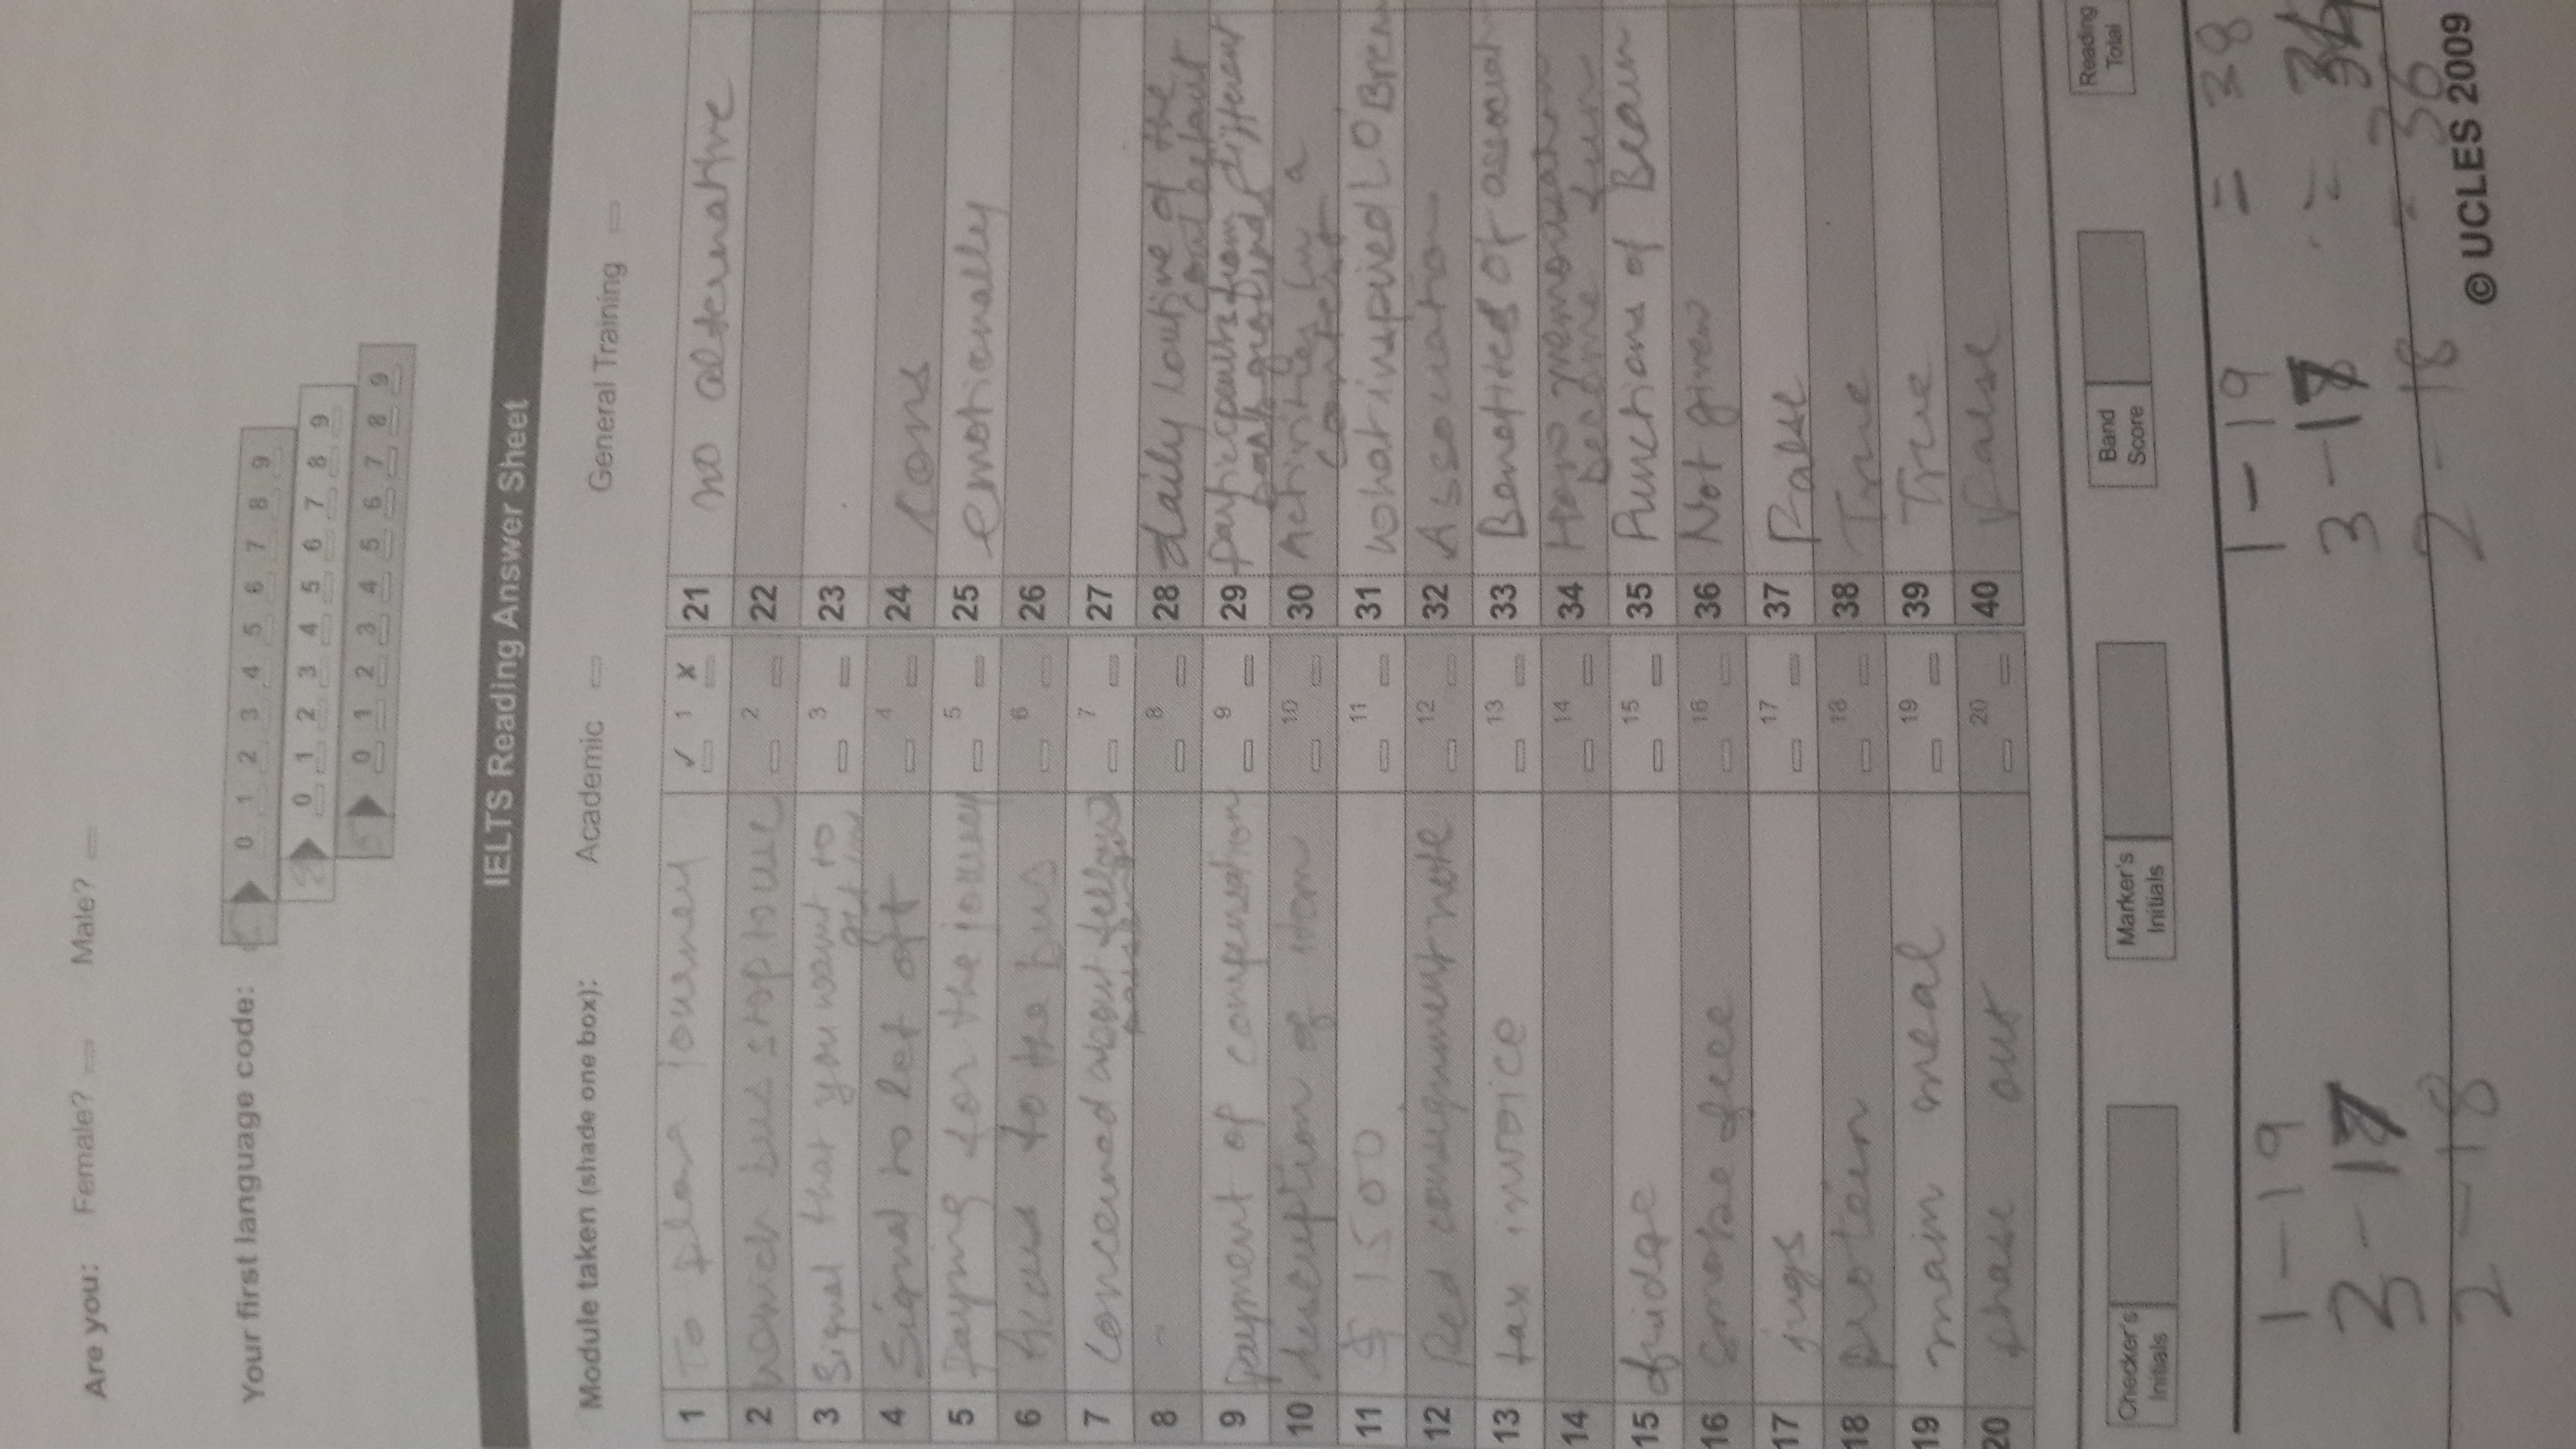 Are you: Female? Male?
Your first language code:
0 1 2 3 4 5 6 7 8 9
0 1 2 3 4 5 6 7 8 9
0 1 2 3 4 5 6 7 8 9
IELTS Reading Answer Sheet
Module taken (shade one box): Academic General Training
1 To plan journey ✓ 1 x
2 which bus stop to use 2
3 Signal that you want to get in 3
4 Signal to let off 4
5 Paying for the journey 5
6 to the bus 6
7 Concerned about fellow 7
8 - 8
9 payment of compensation 9
10 description of item 10
11 $ 1500 11
12 Red consignment note 12
13 tax invoice 13
14 14
15 fridge 15
16 smoke free 16
17 jugs 17
18 protein 18
19 main meal 19
20 phase out 20
21 no alternative
22
23
24 cons
25 emotionally
26
27
28 daily routine of the contestant
29 participants from different
30 Activities by a contestant
31 what inspired LO'Brien
32 Association
33 Benefits of
34 How become fun
35 Functions of Beam
36 Not given
37 False
38 True
39 True
40 False
Checker's Initials
Marker's Initials
Band Score
Reading Total
1 - 19 1 - 19 = 38
3 - 17 3 - 17 = 34
2 - 18 2 - 18 = 36
© UCLES 2009